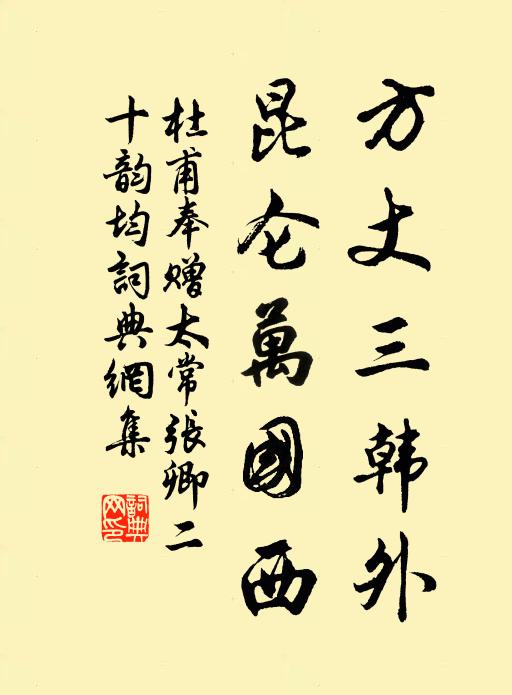 方丈三韩外
昆仑萬國西
杜甫奉赠太常張卿二
十韵均詞典網集
詞典
网印